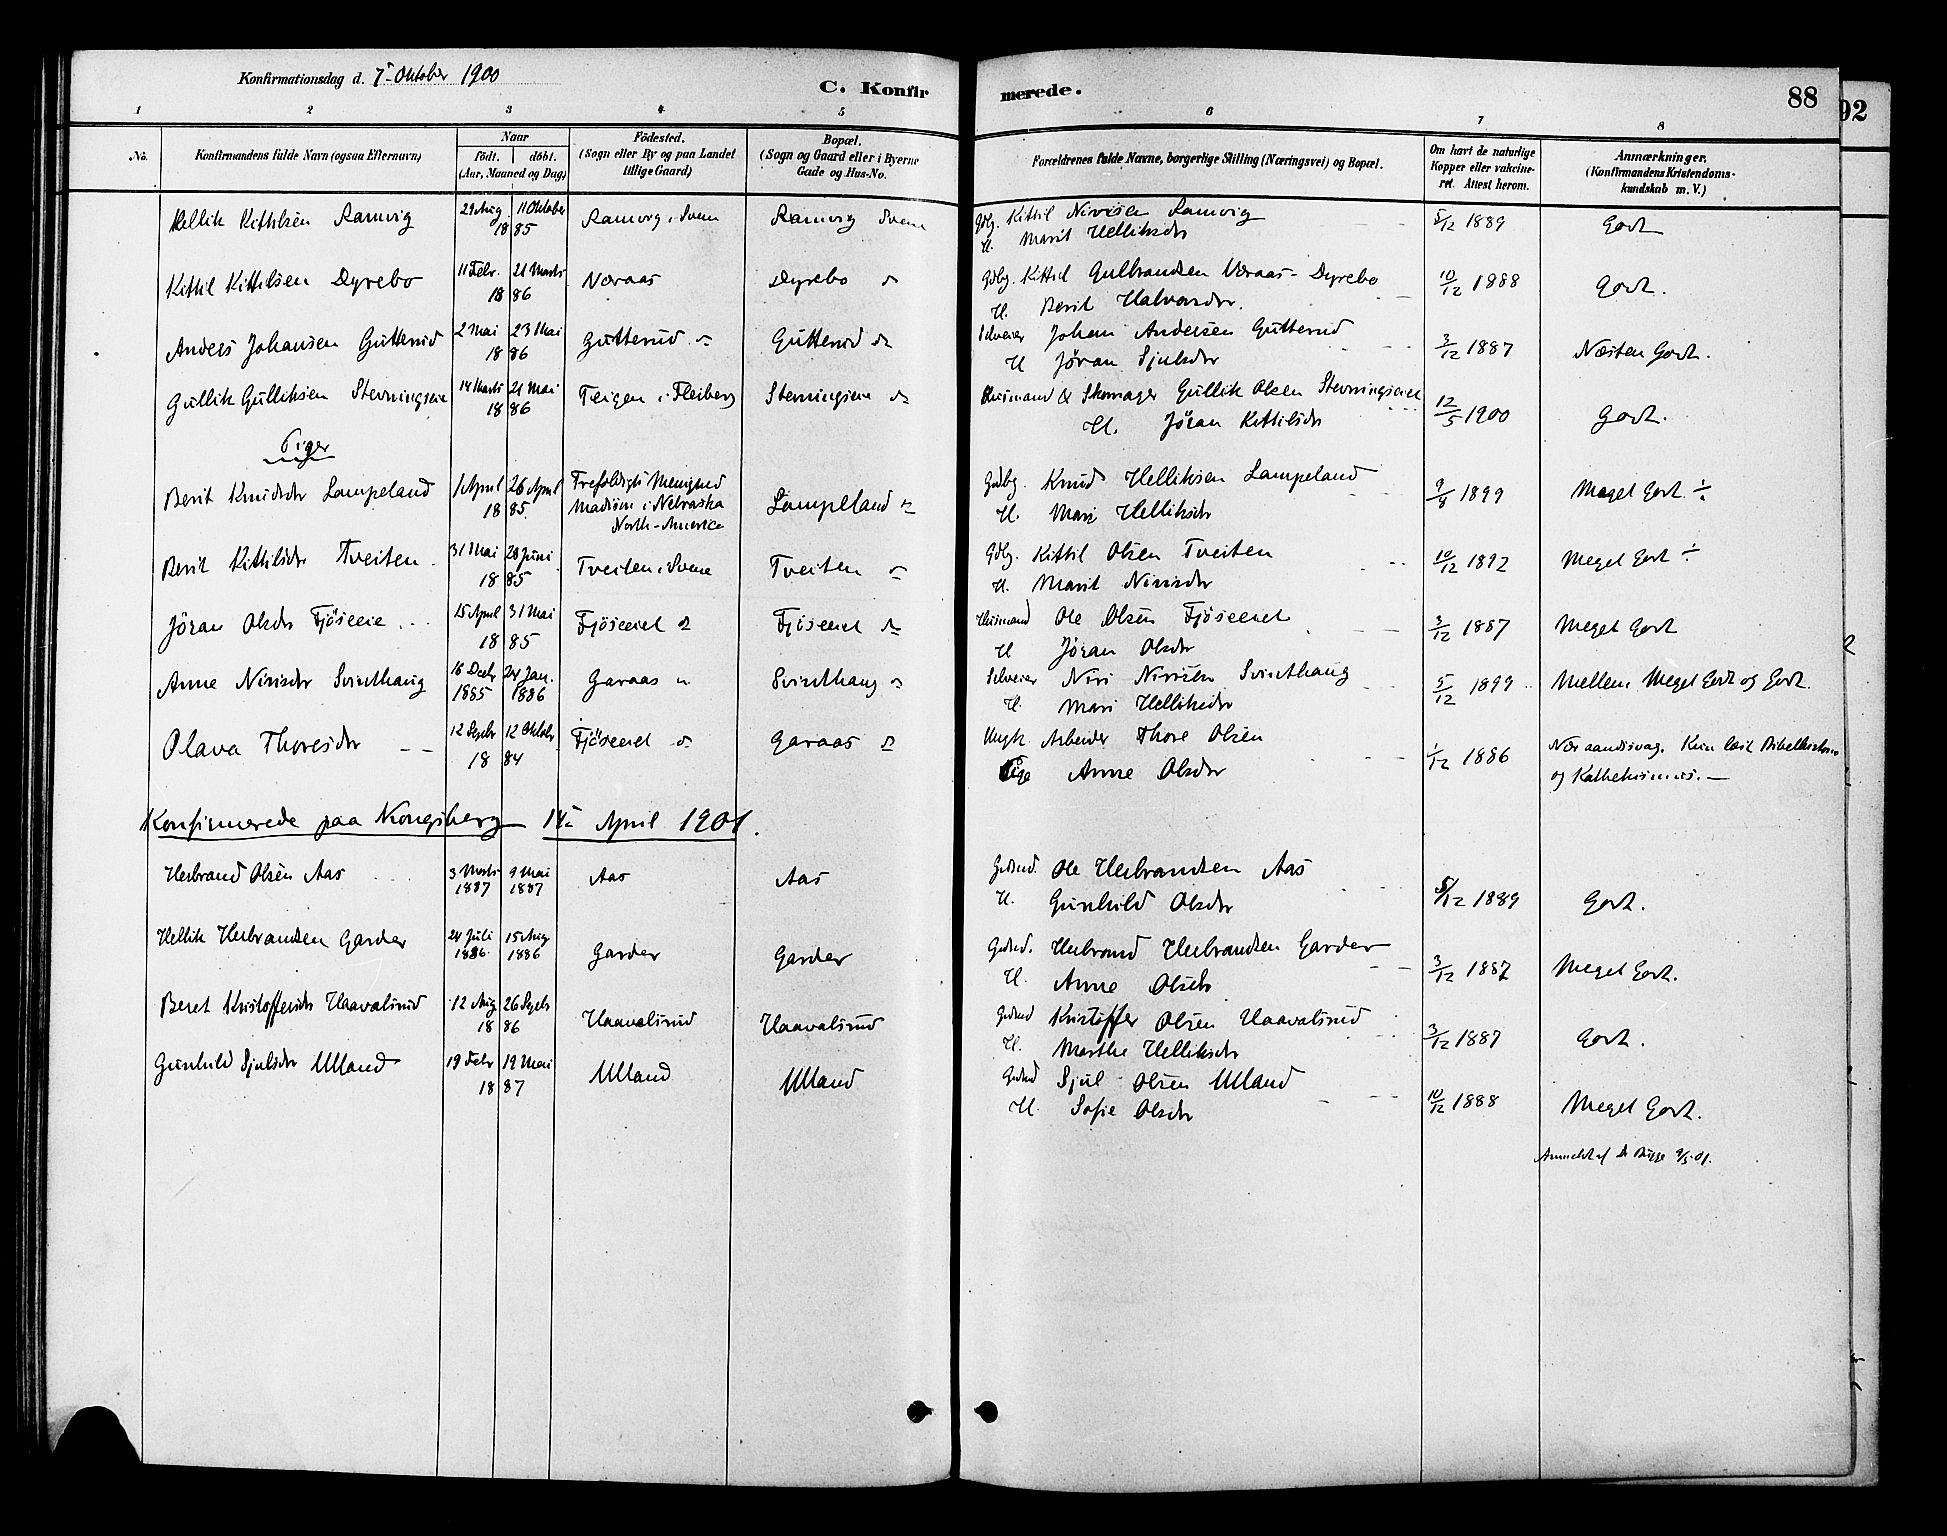 Konfirmationsdag d. 7de Oktober 1900
C. Konfirmerede.
88
92
1 2 3 4 5 6 7 8
No.
Konfirmandens fulde Navn (ogsaa Efternavn)
Naar
født. døbt.
(Aar, Maaned og Dag)
Fødested.
(Sogn eller By og paa Landet
tillige Gaard)
Bopæl.
(Sogn og Gaard eller i Byerne
Gade og Hus-No.
Forældrenes fulde Navne, borgerlige Stilling (Næringsvei) og Bopæl.
Om havt de naturlige
Kopper eller vakcine-
ret. Attest herom.
Anmærkninger.
(Konfirmandens Kristendoms-
kundskab m. V.)
Hellik Kittilsen Ramvig 29 Aug. 11 Oktober 1885 Ramvig i Svene Ramvig Svene Gdbg. Kittil Nirisen Ramvig 5/12 1889 Godt
H. Marit Helliksdr
Kittil Kittilsen Dyrebo 11 Febr. 21 Marts 1886 Væraas Dyrebo do Gdbg. Kittil Gulbrandsen Væraas-Dyrebo 10/12 1888 Godt.
H. Berit Halvorsdr.
Anders Johansen Gutterud 2 Mai 23 Mai 1886 Gutterud do Gutterud do Selveier Johan Andersen Gutterud 3/12 1887 Næsten Godt.
H Jöran Sjulsdr
Gullik Gulliksen Stevningseie 14 Marts 21 Mai 1886 Teigen i Flesberg Stevningseie do Husmand & Skomager Gullik Olsen Stevningseiet 12/5 1900 Godt.
H. Jöran Kittilsdr
Piger
Berit Knudsdr Lampeland 1 April 26 April 1885 Trefoldigh. Menighed
Madison i Nebraska
North-America
Lampeland do Gdbg. Knud Helliksen Lampeland 9/8 1899 Meget Godt ÷
H. Mari Helliksdr
Berit Kittilsdr Tveiten. 31 Mai 28 Juni 1885 Tveiten i Svene Tveiten do Gdbg. Kittil Olsen Tveiten 10/12 1892 Meget Godt ÷
H. Marit Nirisdr
Jöran Olsdr Fjöseeie 15 April 31 Mai 1885 Fjöseeiet do Fjöseeiet do Husmand Ole Olsen Fjöseeiet 3/12 1887 Meget Godt
H Jöran Olsdr
Anne Nirisdr Svinthaug 16 Decbr 1885 24 Jan. 1886 Garaas do Svinthaug do Selveier Niri Nirisen Svinthaug 5/12 1899 Mellem Meget Godt og Godt.
H. Mari Helliksdr
Olava Thoresdr 12 Septbr 12 Oktobr 1884 Fjöseeiet do Garaas do Ungk. Arbeider Thore Olsen 1/12 1886 Nær aandssvag. Kun læst Bibelhistorie
og Kathekismus. —
Pige Anne Olsdr
Konfirmerede paa Kongsberg 14de April 1901.
Herbrand Olsen Aas 3 Marts 1887 9 Mai 1887 Aas Aas Gaardmd. Ole Herbrandsen Aas 5/12 1889 Godt.
H. Gunhild Olsdr
Hellik Herbrandsen Garder 24 Juli 1886 15 Aug 1886 Garder Garder Gaardmd. Herbrand Herbrandsen Garder 3/12 1887 Meget Godt.
H. Anne Olsdr
Beret Kristoffersdr Haavalsrud 12 Aug 26 Septbr 1886 Haavalsrud Haavalsrud Gaardmd Kristoffer Olsen Haavalsrud 3/12 1887 Godt.
H. Marthe Helliksdr
Gunhild Sjulsdr Ulland 19 Febr 19 Mai 1887 Ulland Ulland Gaardmd Sjul Olsen Ulland 10/12 1888 Meget Godt.
H. Sofie Olsdr
Anmeldt af Bugge 9/5 01.